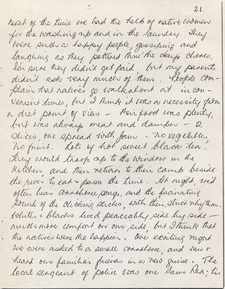 21.
Most of the time we had the help of native women
for the washing up and in the laundry. They
were such a happy people, gossiping and
laughing as they pattered thro' the chores.
I'm sure they didn't get paid but my parents
didn't ask very much of them. People com-
plain that natives go walkabout at in con-
venient times, but I think it was a necessity from
a diet point of view - Their food was plenty,
but was always meat and damper - 2
slices, one spread with jam. No vegetables,
no fruit. Lots of hot sweet black tea!
They would troop up to the window in the
kitchen and then return to their camp beside
the river to eat & pass the time. At night, we'd
often hear corroboree songs, and the fascinating
sound of the clicking sticks, with their strict rhythm.
Whites & blacks lived peaceably, side by side -
much more comfort on our side, but I think that
the natives were the happier. One exciting night
we were asked to a small corroboree, and saw &
heard our familiar friends in a new guise. The
local sergeant of police was one